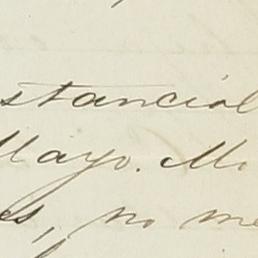 stancial
Mayo. Mi
es, no me